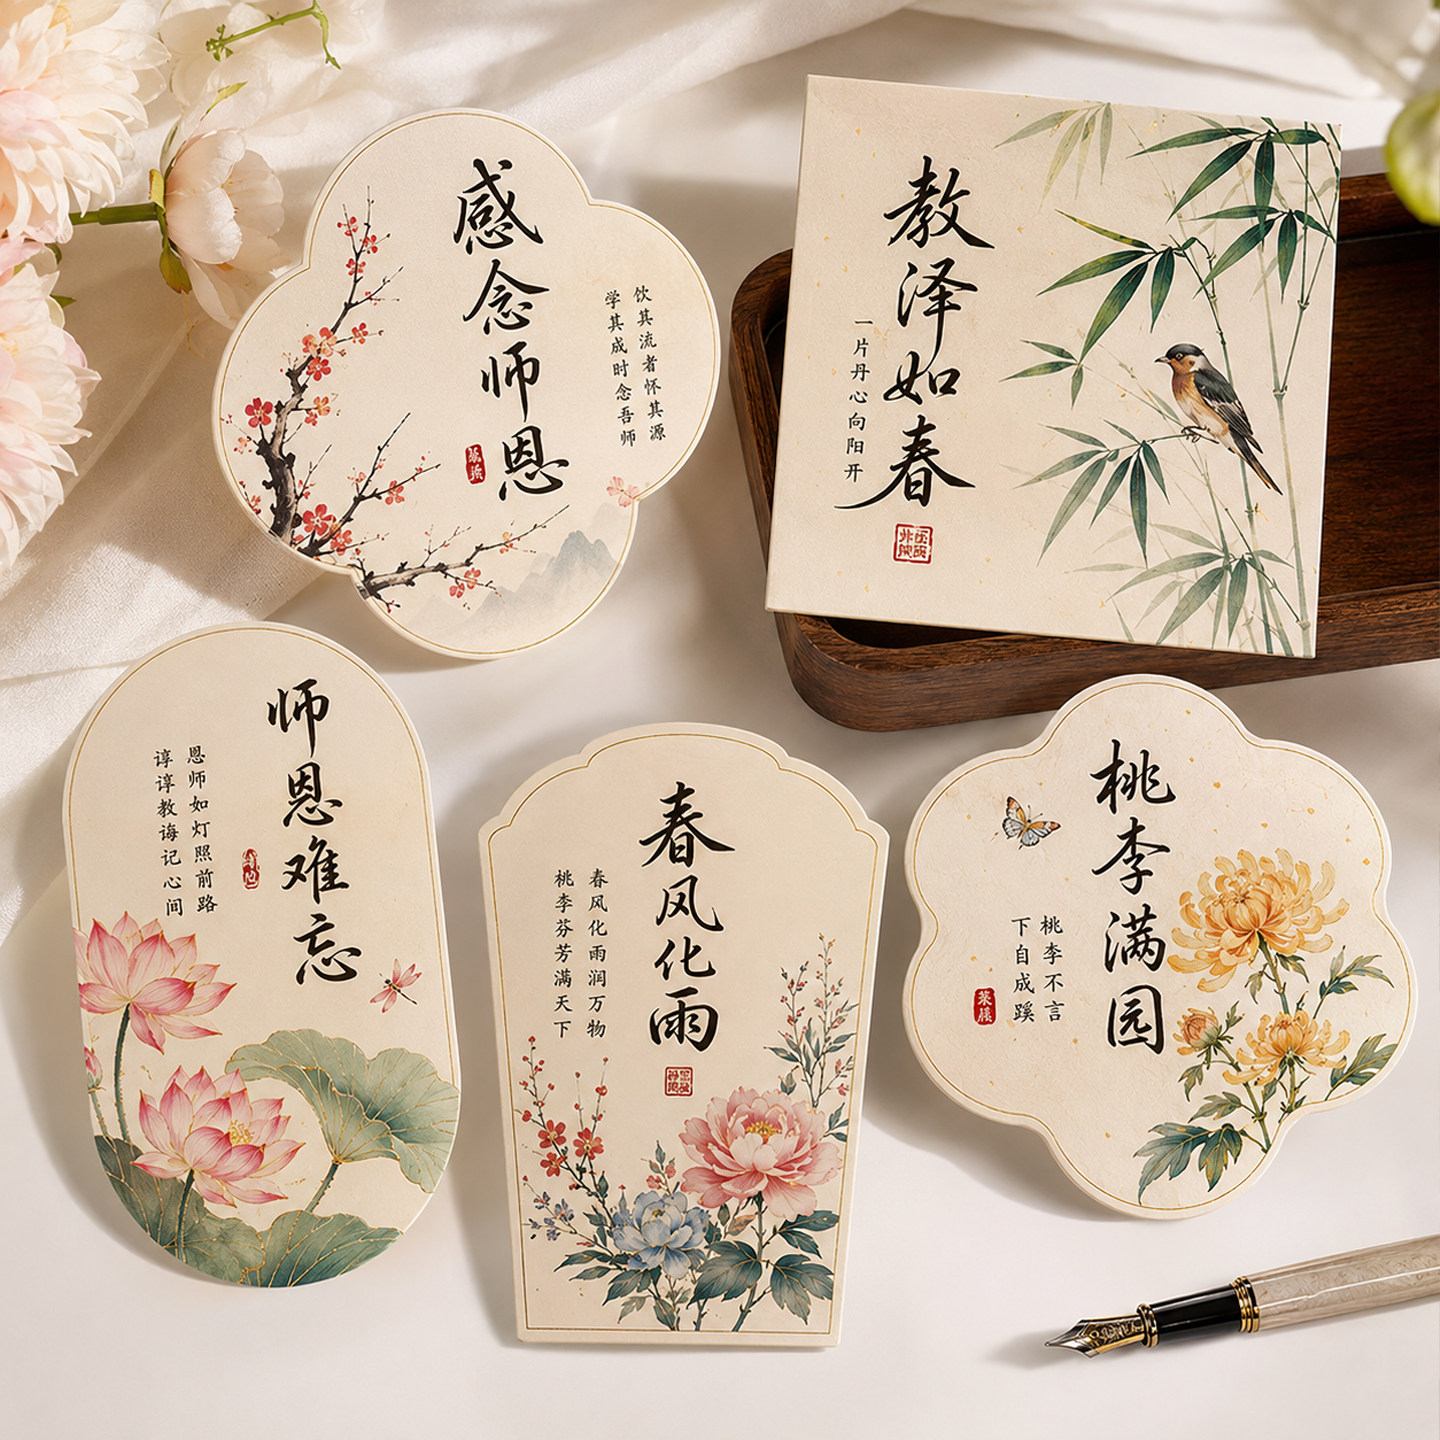 感念师恩
饮其流者怀其源
学其成时念吾师
教泽如春
一片丹心向阳开
师恩难忘
恩师如灯照前路
谆谆教诲记心间
春风化雨
春风化雨润万物
桃李芬芳满天下
桃李满园
桃李不言
下自成蹊